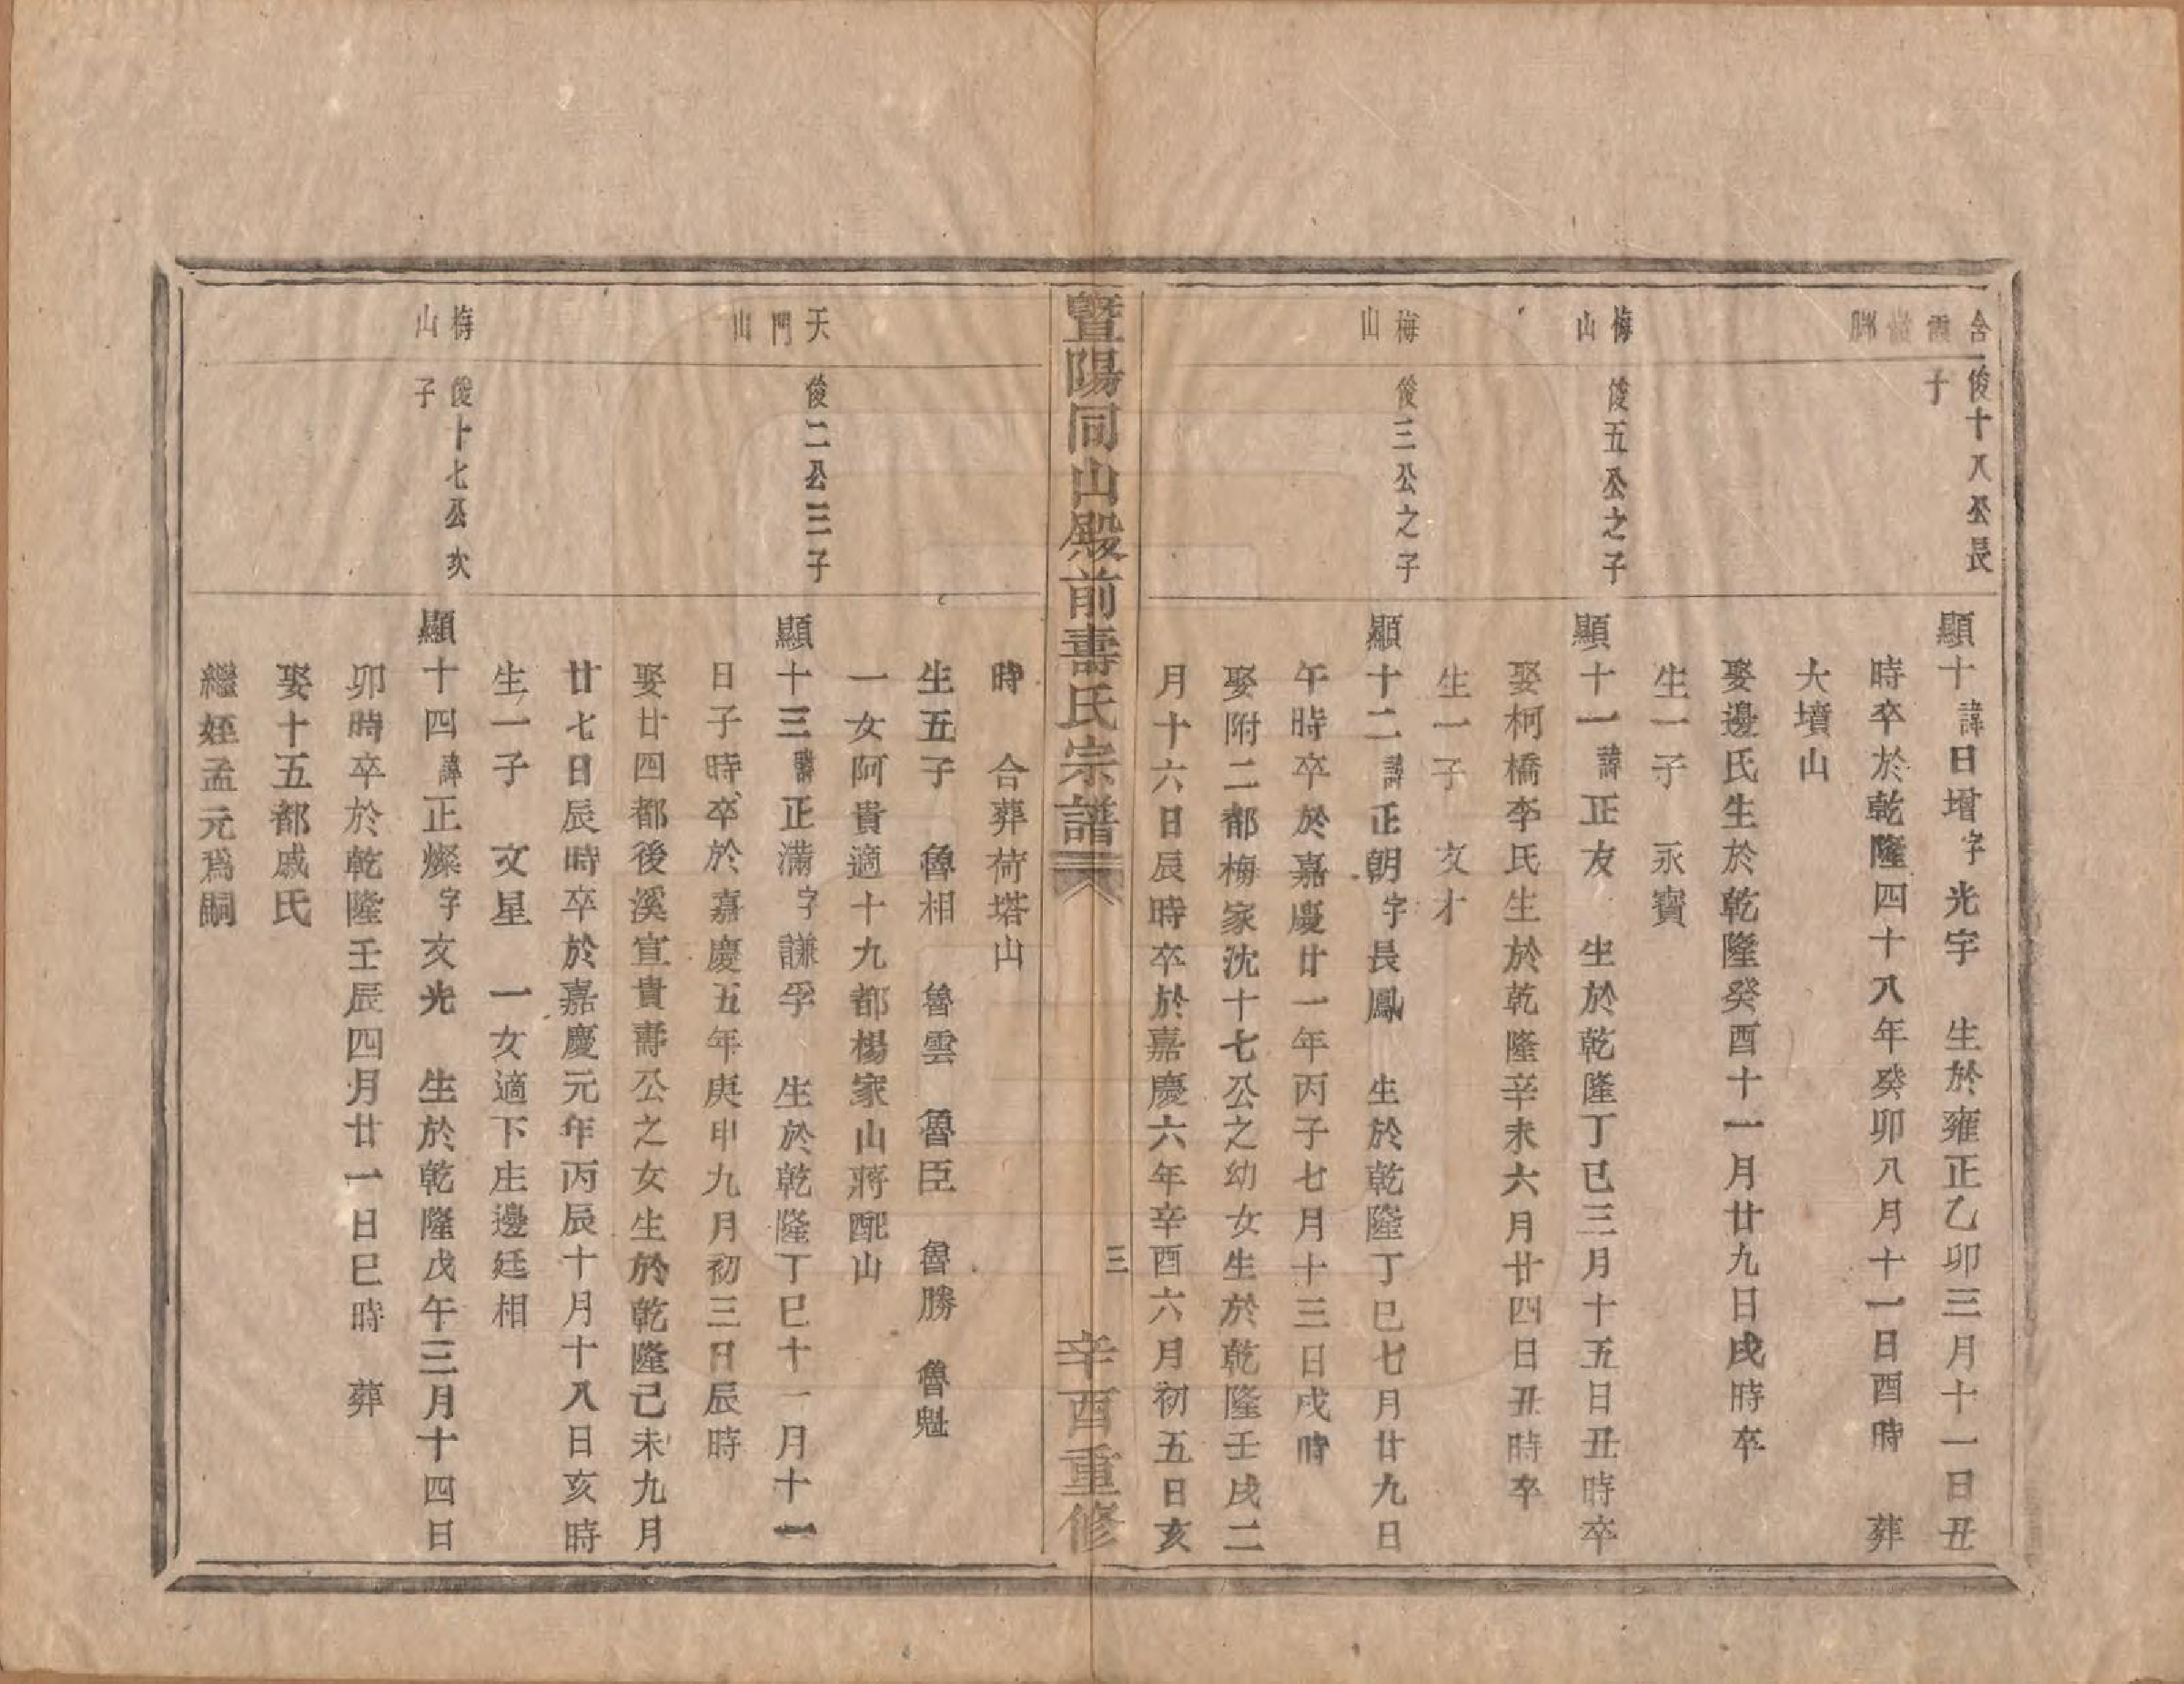 俊十八公長
子
顯十諱日增字光宇 生於雍正乙卯三月十一日丑
時卒於乾隆四十八年癸卯八月十一日酉時 葬
大墳山
娶邊氏生於乾隆癸酉十一月廿九日戌時卒
生一子 永寶
梅
山
俊五公之子
顯十一諱正友 生於乾隆丁巳三月十五日丑時卒
娶柯橋李氏生於乾隆辛未六月廿四日丑時卒
生一子 文才
梅
山
俊三公之子
顯十二諱正朝字長鳳 生於乾隆丁巳七月廿九日
午時卒於嘉慶廿一年丙子七月十三日戌時
娶附二都梅家沈十七公之幼女生於乾隆壬戌二
月十六日辰時卒於嘉慶六年辛酉六月初五日亥
暨陽同山殿前壽氏宗譜
三
辛酉重修
時 合葬荷塔山
生五子 魯相 魯雲 魯臣 魯勝 魯魁
一女阿貴適十九都楊家山蔣配山
天
門
山
俊二公三子
顯十三諱正滿字謙孚 生於乾隆丁巳十一月十一
日子時卒於嘉慶五年庚申九月初三日辰時
娶廿四都後溪宣貴壽公之女生於乾隆己未九月
廿七日辰時卒於嘉慶元年丙辰十月十八日亥時
生一子 文星 一女適下庄邊廷相
梅
山
俊十七公次
子
顯十四諱正燦字文光 生於乾隆戊午三月十四日
卯時卒於乾隆壬辰四月廿一日巳時 葬
娶十五都戚氏
繼姪孟元爲嗣